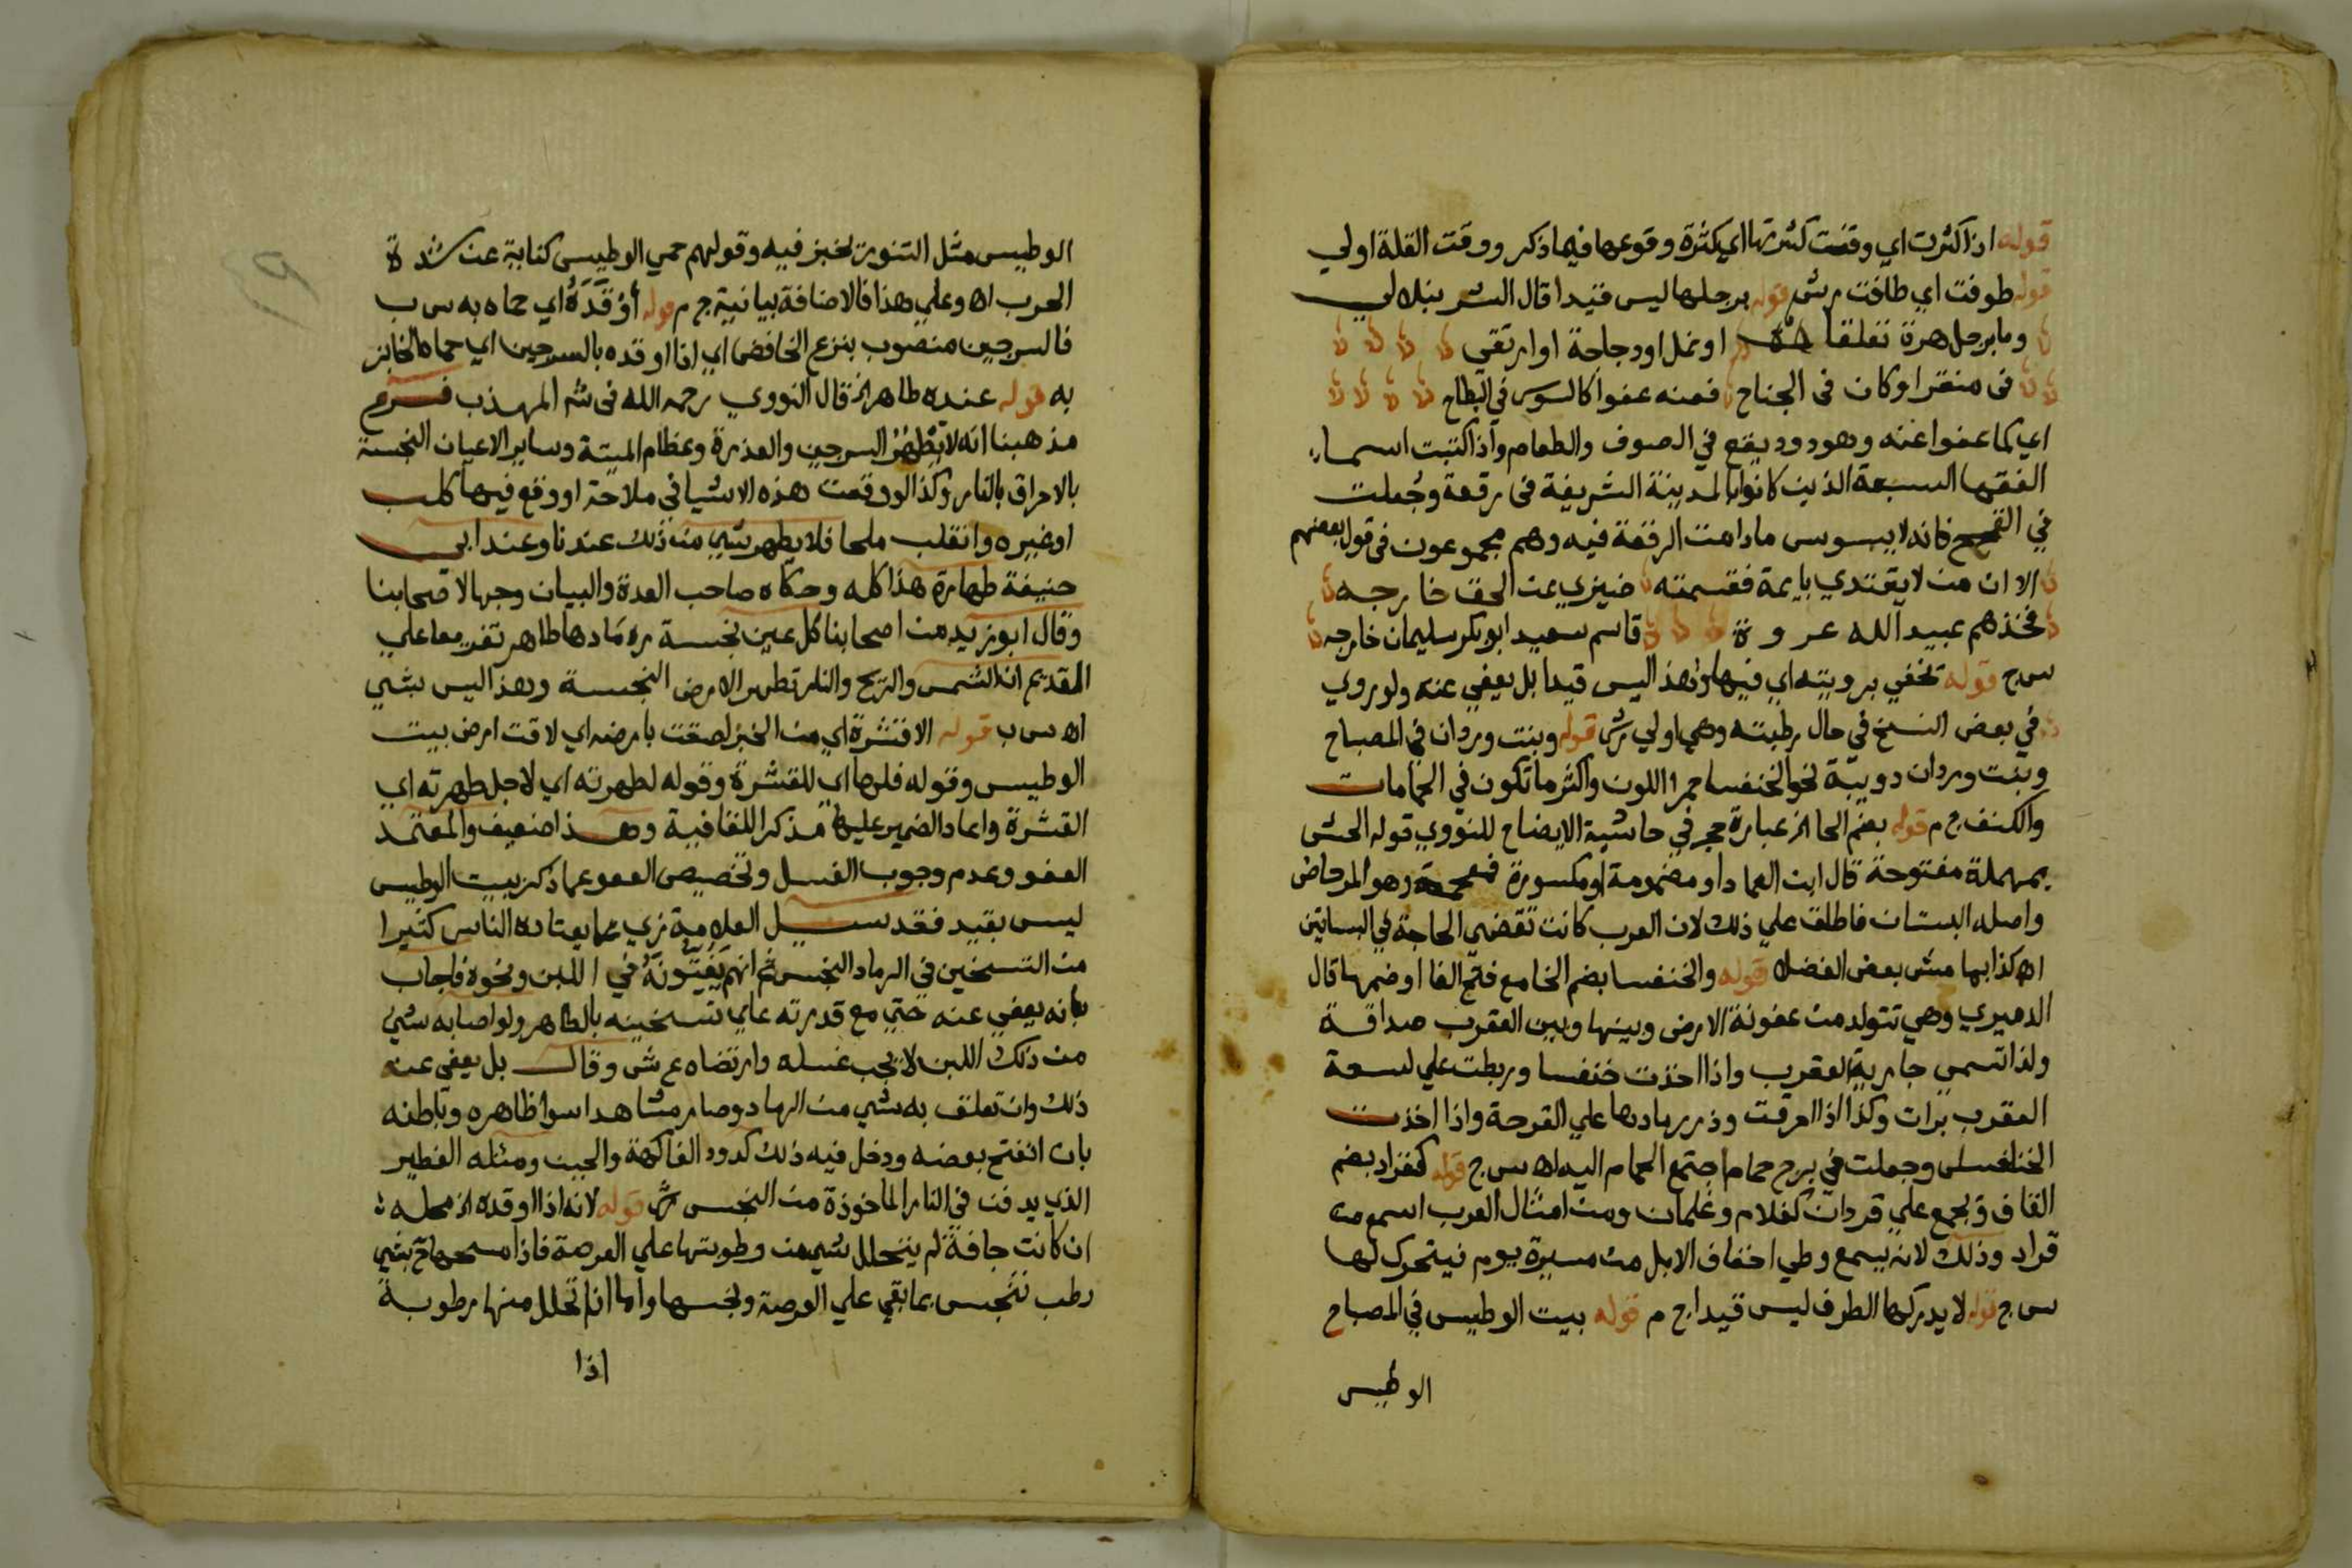 قوله اذا كثرت اي وقعت كثرتها اي كثرة وقوعها فيما ذكر ووقت القلة اولي
قوله طوفت اي طافت م ش قوله برجلها ليس قيدا قال الشرنبلالي
وما برجل هرة تعلقا او نمل او دجاجة او ارتقي
في منفذ او كان في الجناح فعنه عفوا كالسوس في البطاح
اي كما عفوا عنه وهو دود يقع في الصوف والطعام واذا كتبت اسماء
الفقها السبعة الذين كانوا بالمدينة الشريفة في رقعة وجعلت
في القمح فانه لا يسوس ما دامت الرقعة فيه وهم مجموعون في قول بعضهم
الا ان من لا يقتدي بايمة فقسمته ضيزي عن الحق خارجه
فخذهم عبيد الله عروة قاسم سعيد ابو بكر سليمان خارجه
س ج قوله تخفي برويته اي فيها وهذا ليس قيدا بل يعفي عنه ولو روي
في بعض النسخ في حال رطبته وهي اولي ش قوله وبنت وردان في المصباح
وبنت وردان دويبة نحو الخنفسا حمرا اللون واكثر ما تكون في الحمامات
والكنف ج م قوله بضم الحا الخ عبارة حجر في حاشية الايضاح للنووي قوله الحش
بمهملة مفتوحة قال ابن العماد او مضمومة او مكسورة فمعجمة وهو المرحاض
واصله البستان فاطلق علي ذلك لان العرب كانت تقضي الحاجة في البساتين
اه كذا بهامش بعض الفضلا قوله والخنفسا بضم الخا مع فتح الفا او ضمها قال
الدميري وهي تتولد من عفونة الارض وبينها وبين العقرب صداقة
ولذا تسمي جارية العقرب واذا اخذت خنفسا وربطت علي لسعة
العقرب برات وكذا اذا احرقت وذر رمادها علي القرحة واذا اخذت
الخنافس وجعلت في برج حمام اجتمع الحمام اليه اه س ج قوله كقراد بضم
القاف ويجمع علي قردان كغلام وغلمان ومن امثال العرب اسمع من
قراد وذلك لانه يسمع وطي اخفاف الابل من مسيرة يوم فيتحرك لها
س ج قوله لا يدركها الطرف ليس قيدا ج م قوله بيت الوطيس في المصباح
الوطيس
الوطيس مثل التنور يخبز فيه وقولهم حمي الوطيس كناية عن شدة
الحرب اه وعلي هذا فالاضافة بيانية ج م قوله أوْقَدَهُ اي حماه به س ب
فالسرجين منصوب بنزع الخافض اي اذا اوقده بالسرجين اي حماه الخابز
به قوله عنده طاهر الخ قال النووي رحمه الله في شر المهذب فرع
مذهبنا انه لا يطهر السرجين والعذرة وعظام الميتة وساير الاعيان النجسة
بالاحراق بالنار وكذا لو وقعت هذه الاشيا في ملاحة او وقع فيها كلب
او غيره وانقلب ملحا فلا يطهر شي من ذلك عندنا وعند ابي
حنيفة طهارة هذا كله وحكاه صاحب العدة والبيان وجها لاصحابنا
وقال ابو زيد من اصحابنا كل عين نجسة رمادها طاهر تفريعا علي
القديم ان الشمس والريح والنار تطهر الارض النجسة وهذا ليس بشي
اه س ب قوله الا قشرة اي من الخبز لصقت بارضه اي لاقت ارض بيت
الوطيس وقوله فلها اي للقشرة وقوله لطهرته اي لاجل طهرته اي
القشرة واعاد الضمير عليها مذكرا للقافية وهذا ضعيف والمعتمد
العفو وعدم وجوب الغسل وتخصيص العفو عما ذكر ببيت الوطيس
ليس بقيد فقد سيل العلامة زي عما يعتاده الناس كثيرا
من التسخين في الرماد النجس ثم انهم يَفِتُّونَهُ في اللبن ونحوه فاجاب
بانه يعفي عنه حتي مع قدرته علي تسخينه بالطاهر ولو اصابه شي
من ذلك اللبن لا يجب غسله وارتضاه ع ش وقال بل يعفي عنه
ذلك وان تعلق به شي من الرماد وصار مشاهدا سوا ظاهره وباطنه
بان انفتح بعضه ودخل فيه ذلك كدود الفاكهة والجبن ومثله الفطير
الذي يدفن في النار الماخوذة من النجس ش قوله لانه اذا اوقده الخ محله
ان كانت جافة لم يتحلل شي من رطوبتها علي العرصة فاذا مسحها بشي
رطب تنجس بما بقي علي العرصة ونجسها واما ان تحلل منها رطوبة
اذا